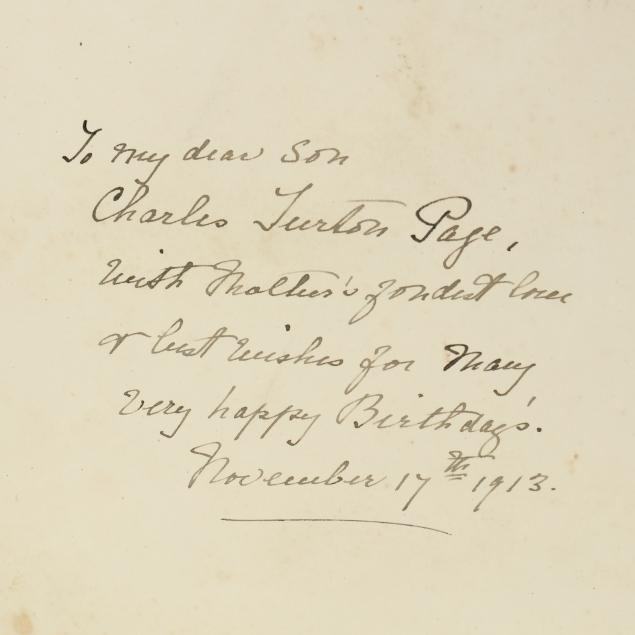 To my dear Son
Charles Turton Page,
with Mother's fondest love
& best wishes for Many
very happy Birthday's.
November 17th 1913.